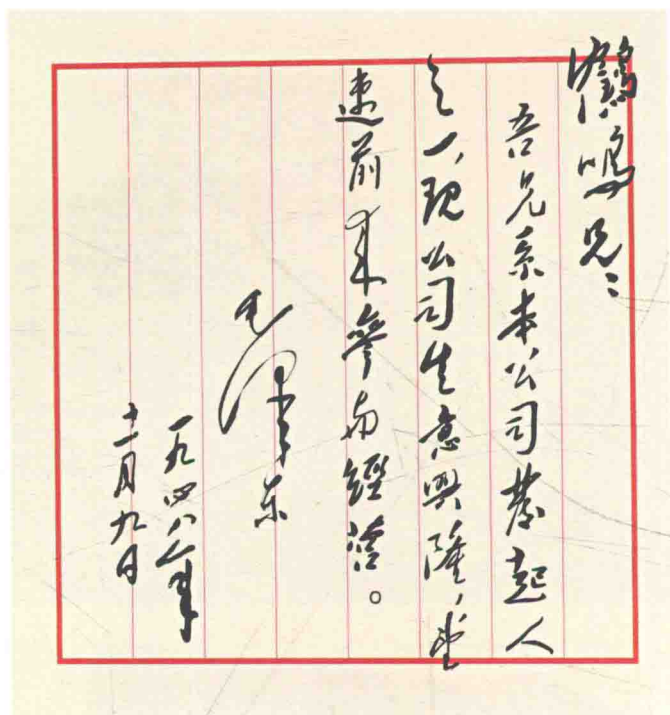 鶴鳴兄：
吾兄系本公司發起人
之一，現公司生意興隆，望
速前來參与經營。
毛澤东
一九四八年
十一月九日